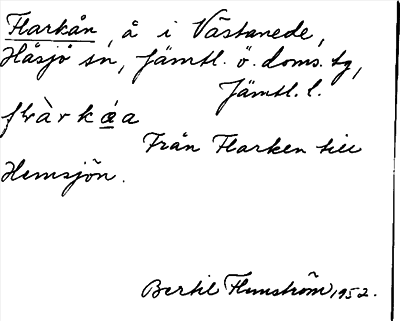 Flarkån, å i Västanede,
Håsjö sn, Jämtl. ö. doms. tg,
Jämtl. l.
Från Flarken till
Hemsjön.
Bertil Flemström 1952.